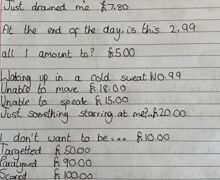 Just drowned me £7.80
At the end of the day, is this 2.99
all I amount to? £5.00
Waking up in a cold sweat £10.99
Unable to move £18.00
Unable to speak £15.00
Just something starring at me?.. £20.00
I don't want to be... £10.00
Targetted £50.00
Paralyzed £90.00
Scared £100.00